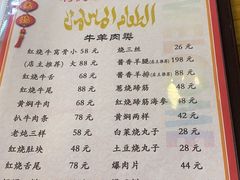 الطعام الإسلامي
牛羊肉类
红烧牛窝骨小 58 元
(店主推荐) 大 88 元
红烧牛舌 68 元
红烧牛尾 88 元
黄焖牛肉 68 元
扒牛肉条 78 元
老炖三样 58 元
红烧肚块 48 元
红烧舌尾 78 元
烧三丝 26 元
酱香羊腿(店主推荐) 198 元
酱香羊排(店主推荐) 88 元
葱烧蹄筋 48 元
红烧蹄筋海参 48 元
黄焖两样 42 元
白菜烧丸子 28 元
土豆烧丸子 28 元
爆肉片 44 元